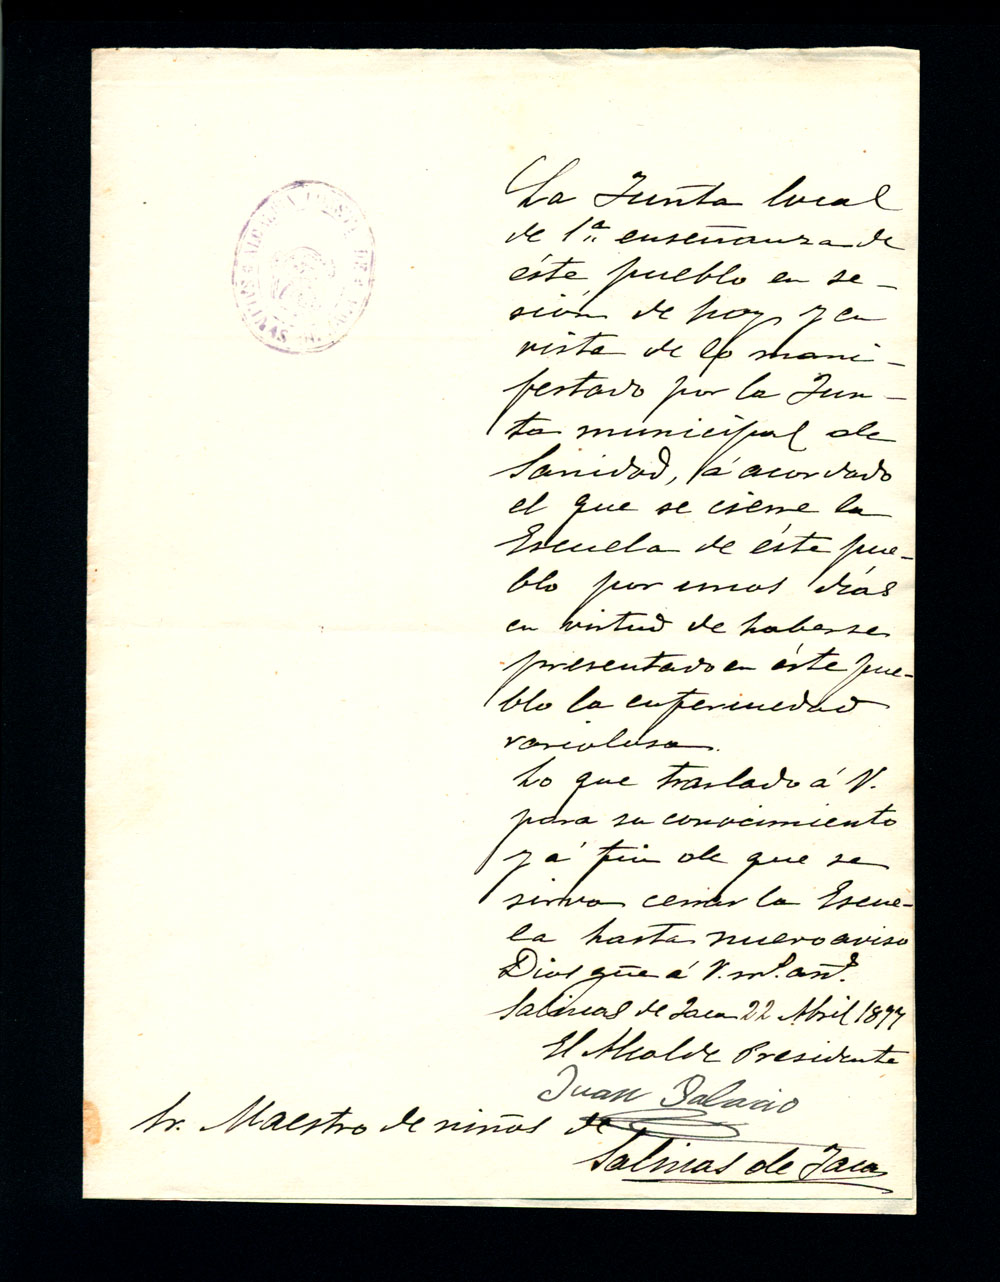 ALCALDIA CONSTAL DE
SALINAS
La Junta local
de 1ª enseñanza de
éste pueblo en se-
sión de hoy y en
vista de lo mani-
festado por la Jun-
ta municipal de
Sanidad, á acordado
el que se cierre la
Escuela de éste pue-
blo por unos días
en virtud de haberse
presentado en éste pue-
blo la enfermedad
variolosa.
Lo que traslado á V.
para su conocimiento
y á fin de que se
sirva cerrar la Escue-
la hasta nuevo aviso
Dios güe á V. ms. ans.
Salinas de Jaca 22 Abril 1897
El Alcalde Presidente
Juan Palacio
Sr. Maestro de niños de
Salinas de Jaca